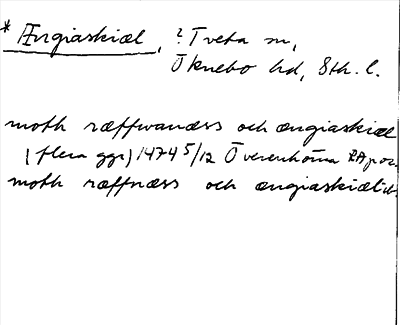 * Ængiaskiæl, ? Tveta sn,
Öknebo hd, Sth. l.
moth ræffwanæss och ængiaskiæl
(flera ggr) 1474 5/12 Överenhörna RA
moth ræffnæss och ængiaskiæl